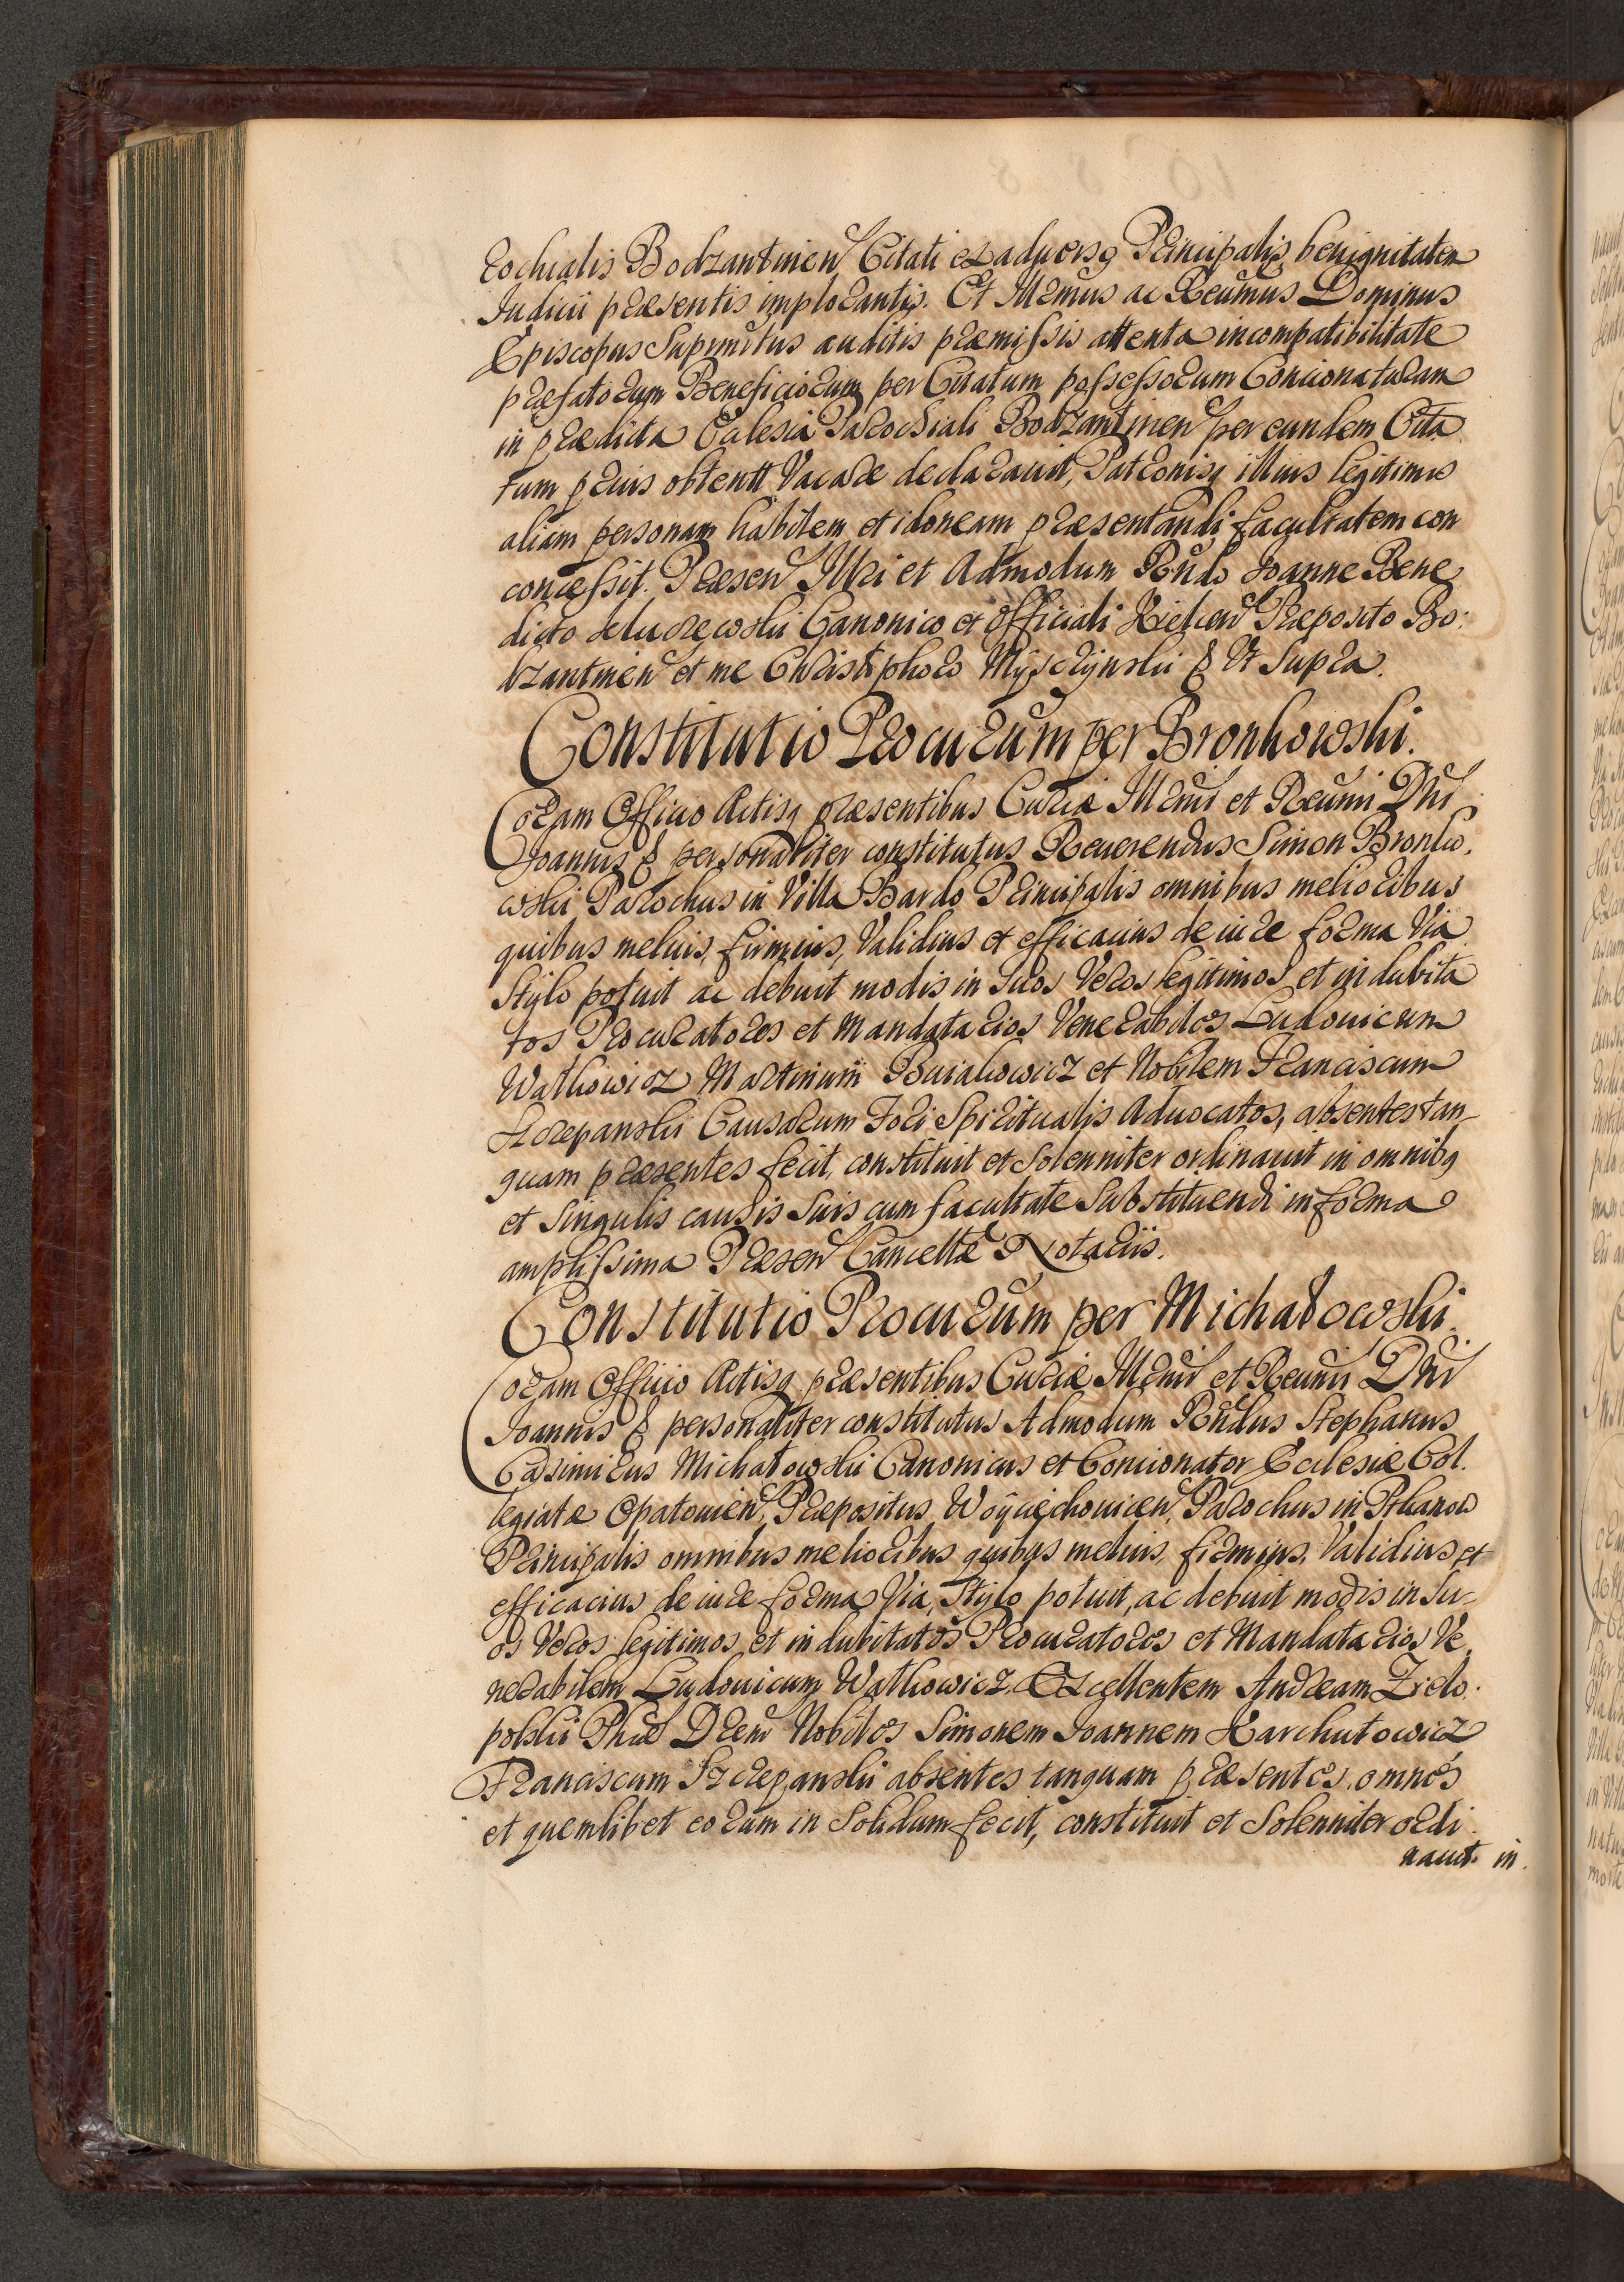 rochialis Bodzantinen Citati ex adverso Principalis benignitatem
Iudicii præsentis implorantis. Et Illrmus ac Reumus Dominus
Episcopus Suprmitus auditis præmissis attenta incompatibilitate
præfatorum Beneficiorum per Citatum possessorum Concionaturam
in prædicta Eclesia Parochiali Bodzantinen per eundem Cita
tum prius obtent Vacare declarauit, Patronisq illius legitimis
aliam personam habilem et idoneam præsentandi facultatem con
concessit. Præsen Illri et Admodum Rndo Joanne Bene
dicto Canonico et Officiali Kielcen Præposito Bo:
dzantinen et me Christophoro Myschynski & Ut Supra.
Constitutio Procurum per Bronkowski.
Coram Officio Actisq præsentibus Curiæ Illrmi et Reumi Dni
Joannis & personaliter constitutus Reuerendus Simon Bronko,
wski Parochus in Villa Bardo Principalis omnibus melioribus
quibus melius, firmius, Validius et efficacius de iure forma Via
Stylo potuit ac debuit modis in Suos Veros legitimos et indubita
tos Procuratores et Mandatarios Venerabiles Ludouicum
Watkowicz Martinum Buiakowicz et Nobilem Franciscum
Szczepanski Causarum Fori Spiritualis Aduocatos, absentes tan-
quam præsentes fecit, constituit et Solenniter ordinauit in omnibq
et Singulis causis Suis cum facultate Substituendi in forma
amplissima Præsen Cancellæ Notariis.
Constitutio Procurum per Michałowski.
Coram Officio Actisq præsentibus Curiæ Illrmi et Reumi Dni
Joannis & personaliter constitutus Admodum Rndus Stephanus
Casimirus Michałowski Canonicus et Concionator Ecclesiæ Col.
legiatæ Opatouien, Præpositus Woyciechouicen, Parochus in Ptkanow
Principalis omnibus melioribus quibus melius, firmius, Validius et
efficacius de iure forma Via, Stylo potuit, ac debuit modis in Su-
os Veros legitimos et indubitatos Procuratores et Mandatarios Ve
nerabilem Ludouicum Watkowicz, Excellentem Andream Zielo.
polski Phiæ Drem Nobiles Simonem Joannem Karchutowicz
Franciscum Szczepanski absentes tanquam præsentes, omnes
et quemlibet eorum in Solidum fecit, constituit et Solenniter ordi.
nauit in.